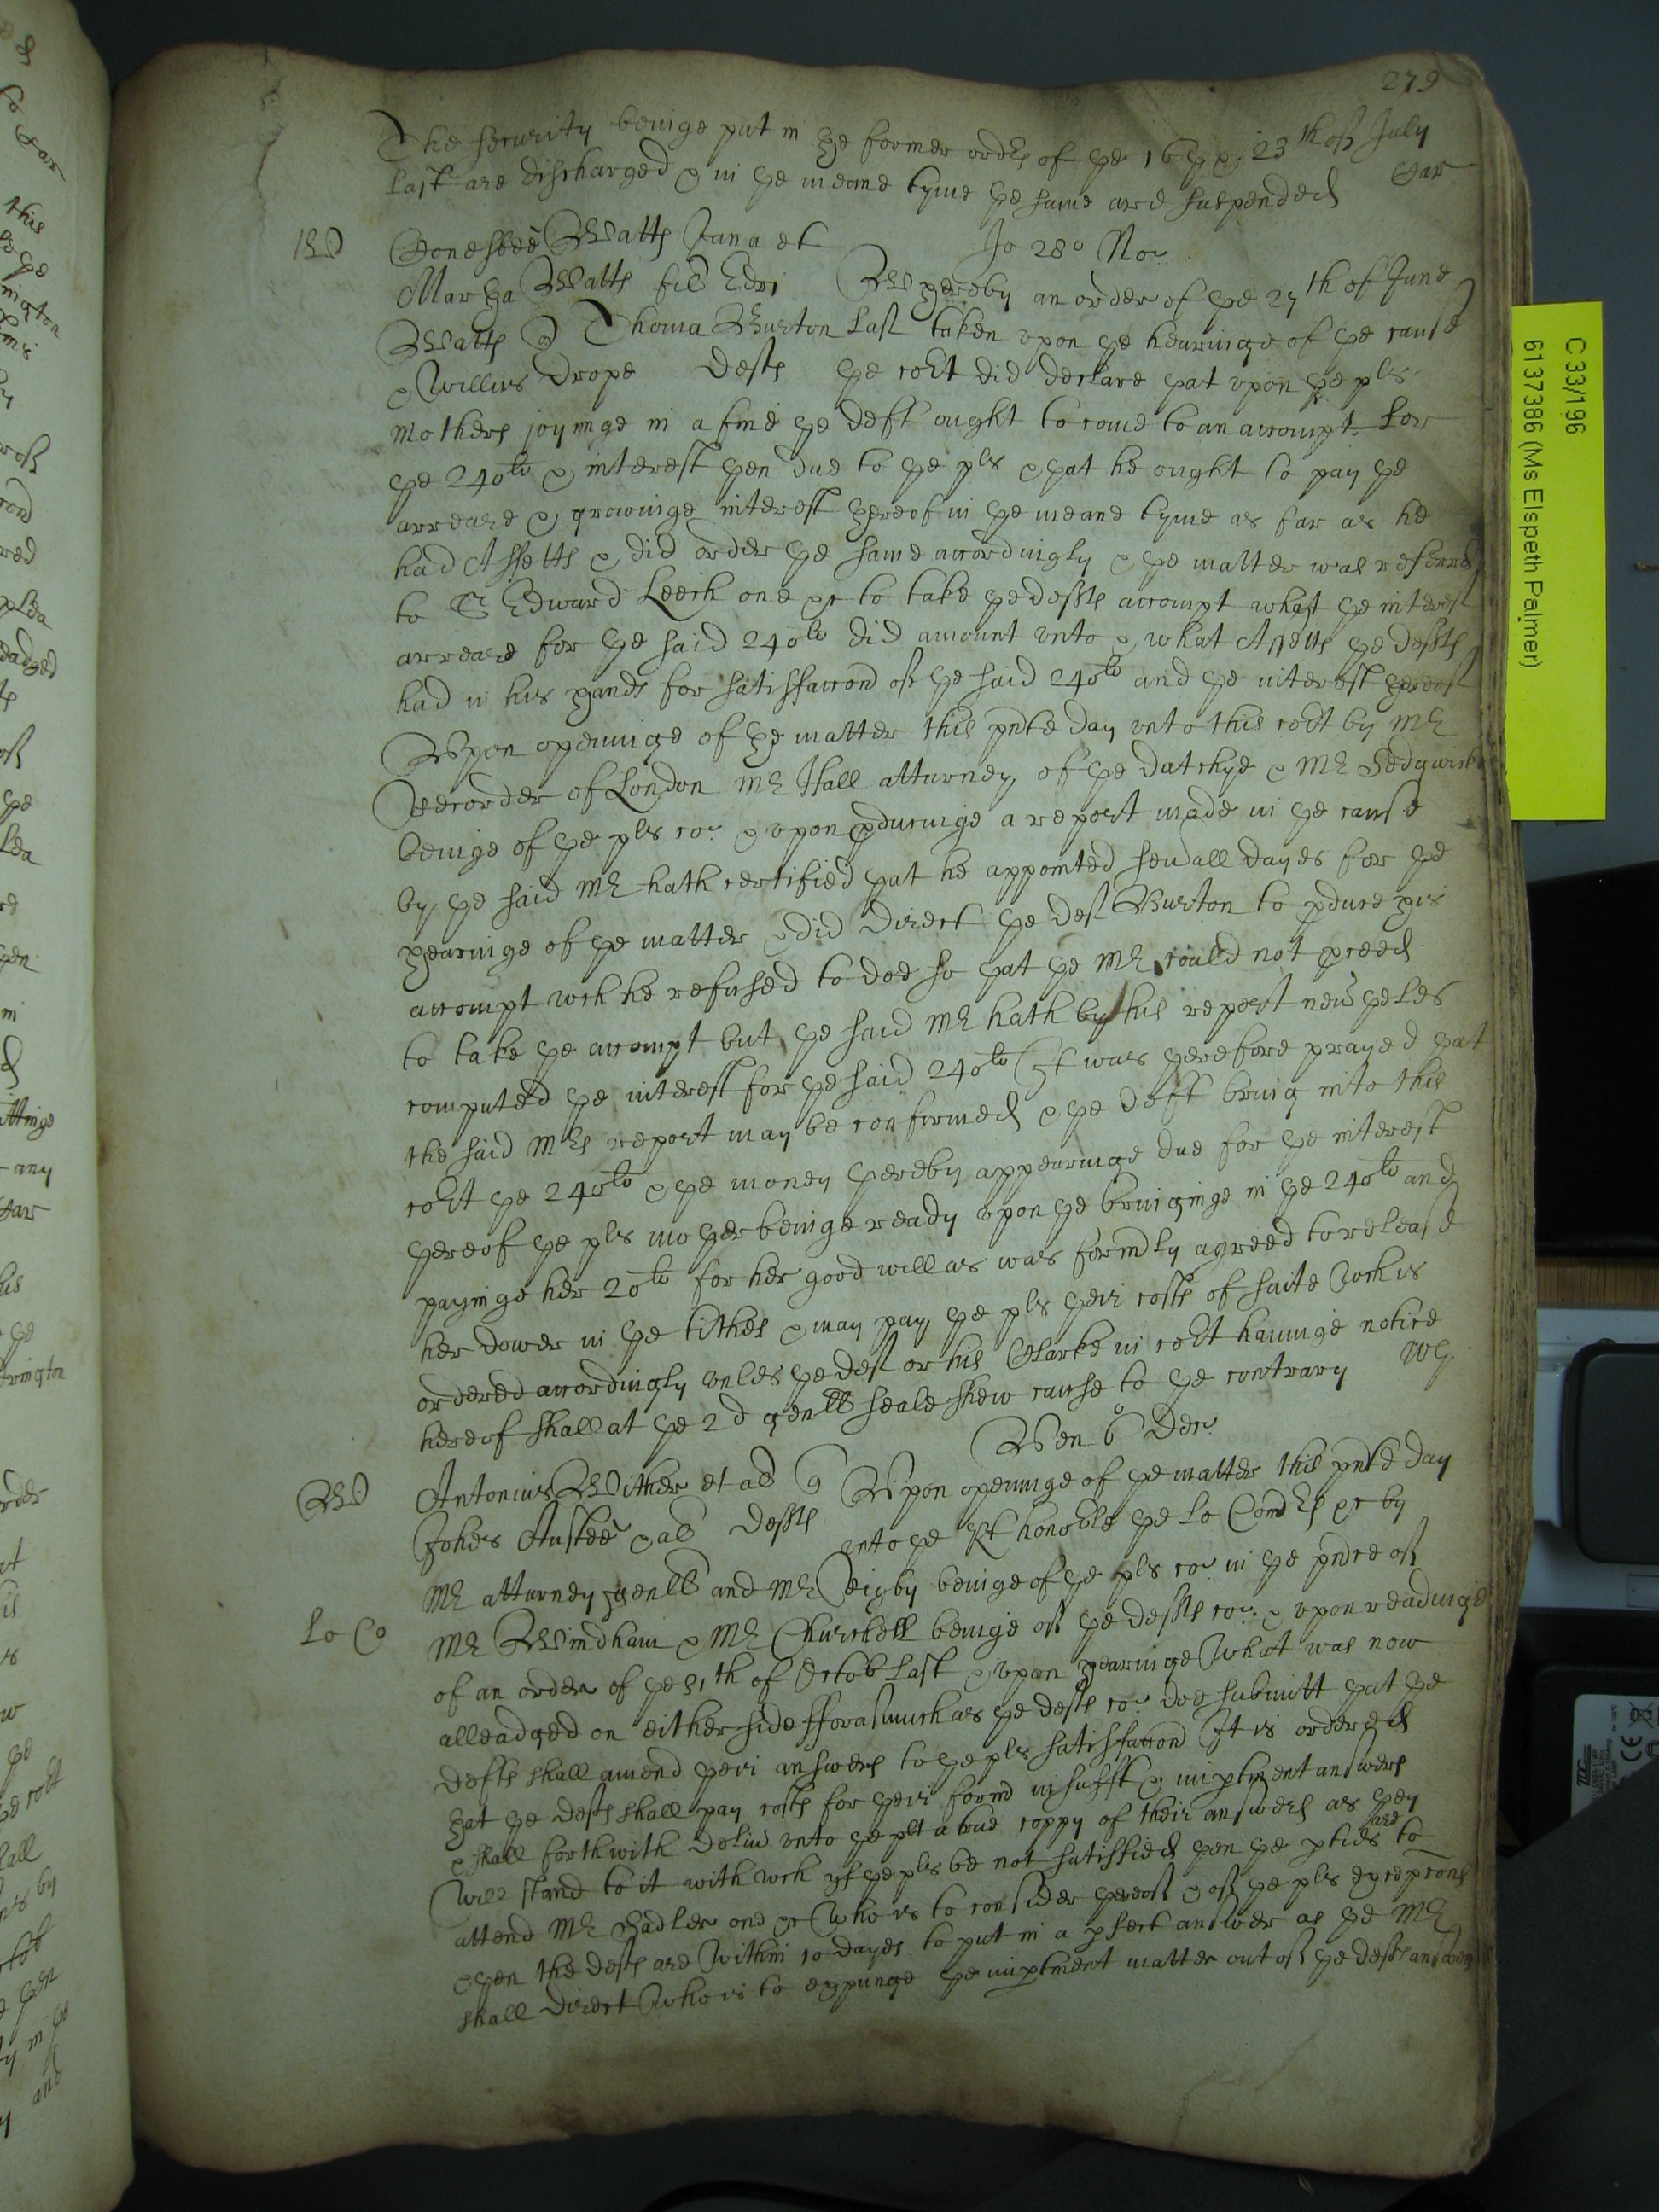 279
The security beinge put in ye former ordrs of ye 16 & ye 23th of July
last are discharged & in ye meane tyme ye same are suspended
Jo 28o No
Watts Jana et
Martha Watts fil Edri Whereby an order of ye 27th of June
Watts Thoma Burton last taken upon ye hearinge of ye cause
& Willms Drope defts ye cort did declare yat upon ye pls
mothers joyninge in a fine ye deft ought to come to an accompt for
ye 240li & interest yen due to ye pls & yat he ought to pay ye
arreare & growinge interest yereof in ye meane tyme as far as he
had Assetts & did order ye same accordingly & ye matter was referred
to Sr Edward Leech one &c to take ye defts accompt what ye interest
arreare for ye said 240li did amount unto & what Assetts ye defts
had in his hands for satisfaccond of ye said 240li and ye interest yereof
Upon openinge of ye matter this pnte day unto this cort by Mr
Recorder of London Mr Hall atturney of ye dutchye & Mr Sedgwick
beinge of ye pls co & upon pducinge a report made in ye cause
by ye said Mr hath certified yat he appointed seuall dayes for ye
hearinge of ye matter & did direct ye deft Burton to pduce his
accompt wch he refused to doe so yat ye Mr could not pceed
to take ye accompt but ye said Mr hath by his report neuyeles
computed ye interest for ye said 240li It was yerefore prayed yat
the said Mrs report may be confirmed & ye deft bring into this
cort ye 240li & ye money yereby appearinge due for ye interest
yereof ye pls moyer beinge ready upon ye bringinge in ye 240li and
payinge her 20li for her good will as was formrly agreed to release
her dower in ye tithes & may pay ye pls yeir costs of suite wch is
ordered accordingly unles ye deft or his Clarke in cort hauinge notice
hereof shall at ye 2d genll seale shew cause to ye contrary
Ven 6o Dec
Antonius Wither et al Upon openinge of ye matter this pnte day
Johes Austee & al defts unto ye Rt honoble ye Lo Comrs &c by
Mr atturney genll and Mr Rigby beinge of ye pls co in ye pnce of
Lo Co Mr Windham & Mr Churchell beinge of ye defts co & upon readinge
of an order of ye 31th of Octob last & upon hearinge what was now
alleadged on either side fforasmuch as ye defts co doe submitt yat ye
defts shall amend yeir answers to ye pls satisfaccond It is ordered
yat ye defts shall pay costs for yeir formr insufft & imptinent answers
& shall forthwith deliu unto ye plt a true coppy of their answers as yey
will stand to it with wch yf ye pls be not satisfied yen ye pties are to
attend Mr Eadler one &c who is to consider yereof & of ye pls excepcons
& yen the defts are within 10 dayes to put in a pfect answer as ye Mr
shall direct who is to expunge ye imptinent matter out of ye defts answers
C 33/196
6137386 (Ms Elspeth Palmer)